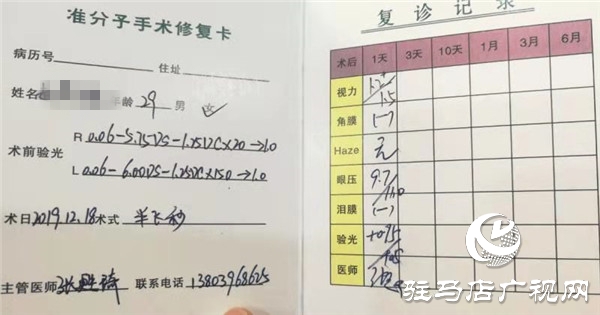 准分子手术修复卡
病历号 住址
姓名 年龄 29 男 女
术前验光
R 0.06 -5.75DS -1.25DC×20→1.0
L 0.06 -6.00DS -1.25DC×150→1.0
术日 2019.12.18 术式 半飞秒
主管医师 联系电话 13803968625
复诊记录
术后 1天 3天 10天 1月 3月 6月
视力 1.5
角膜 (一)
Haze 无
眼压 9.7
泪膜 (一)
验光 +0.75
医师
驻马店广视网